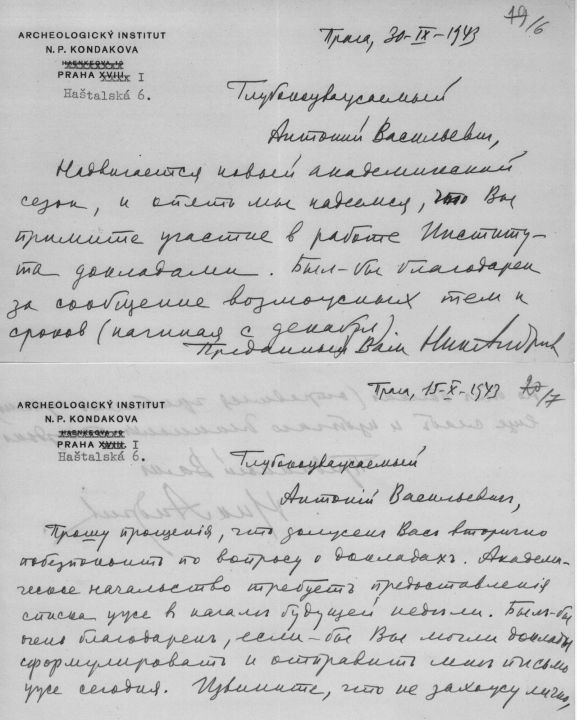 19/6
ARCHEOLOGICKÝ INSTITUT
N. P. KONDAKOVA
HAENKEOVA 10
PRAHA XVIII. I
Haštalská 6.
Прага, 30-IX-1943
Глубокоуважаемый
Антоний Васильевич,
Надвигается новый академический
сезон, и опять мы надеемся, что Вы
примите участие в работе Институ-
та докладами. Был-бы благодарен
за сообщение возможных тем и
сроков (начиная с декабря).
Преданный Вам Ник Андреев
ARCHEOLOGICKÝ INSTITUT
N. P. KONDAKOVA
HAENKEOVA 10
PRAHA XVIII. I
Haštalská 6.
Прага, 15-X-1943
20/7
Глубокоуважаемый
Антонiй Васильевич,
Прошу прощенiя, что должен Вас вторично
побезпокоить по вопросу о докладахъ. Академи-
ческое начальство требуетъ предоставленiя
списка уже в началѣ будущей недѣли. Был-бы
очень благодаренъ, если-бы Вы могли доклады
сформулировать и отправить мнѣ письмо
уже сегодня. Извините, что не захожу лично,